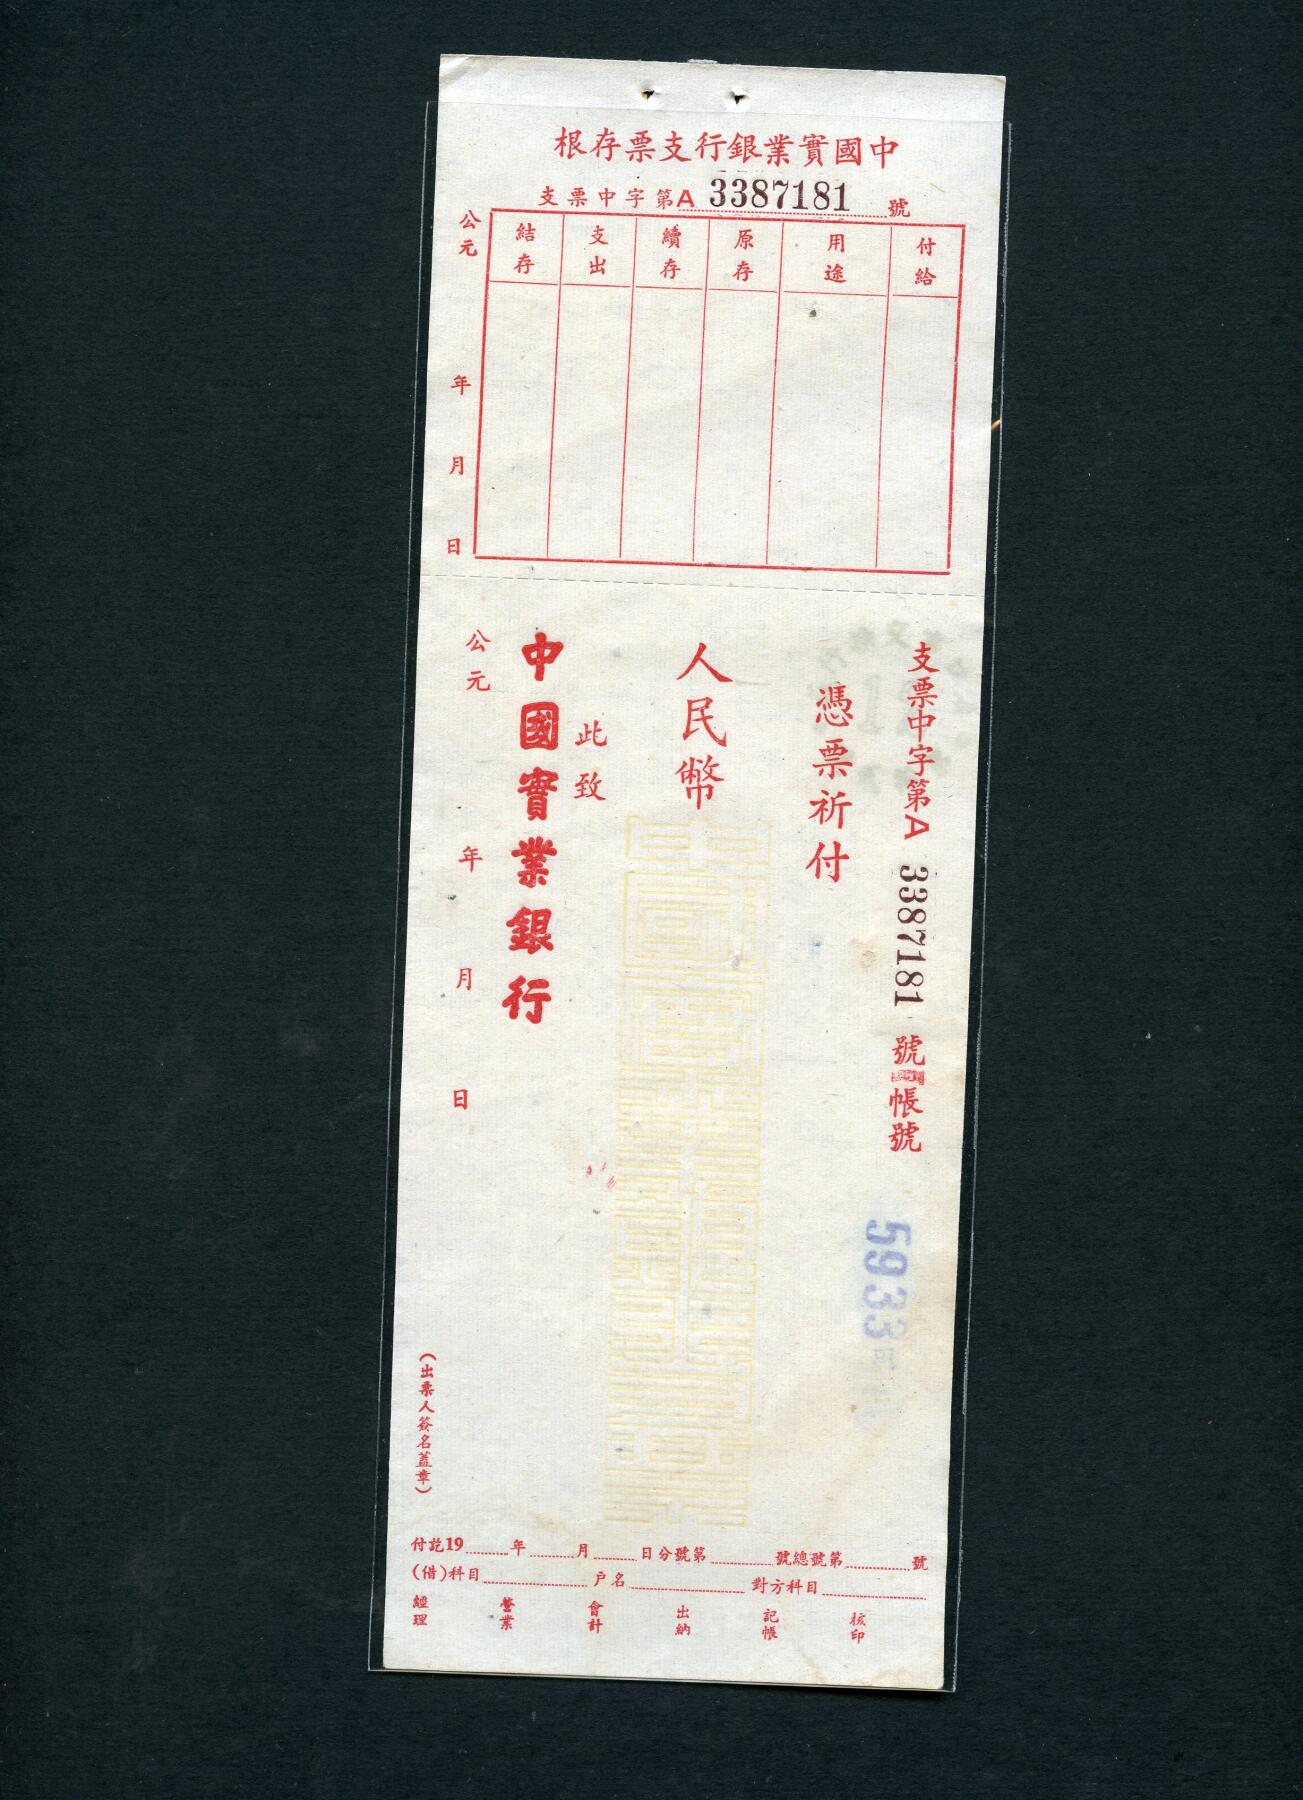 中國實業銀行支票存根
支票中字第A 3387181 號
付給
用途
原存
續存
支出
結存
公元 年 月 日
支票中字第A 3387181 號 帳號
5933
憑票祈付
人民幣
此致
中國實業銀行
公元 年 月 日
(出票人簽名蓋章)
付訖19 年 月 日分號第 號總號第 號
(借)科目 戶名 對方科目
經理 營業 會計 出納 記帳 核印